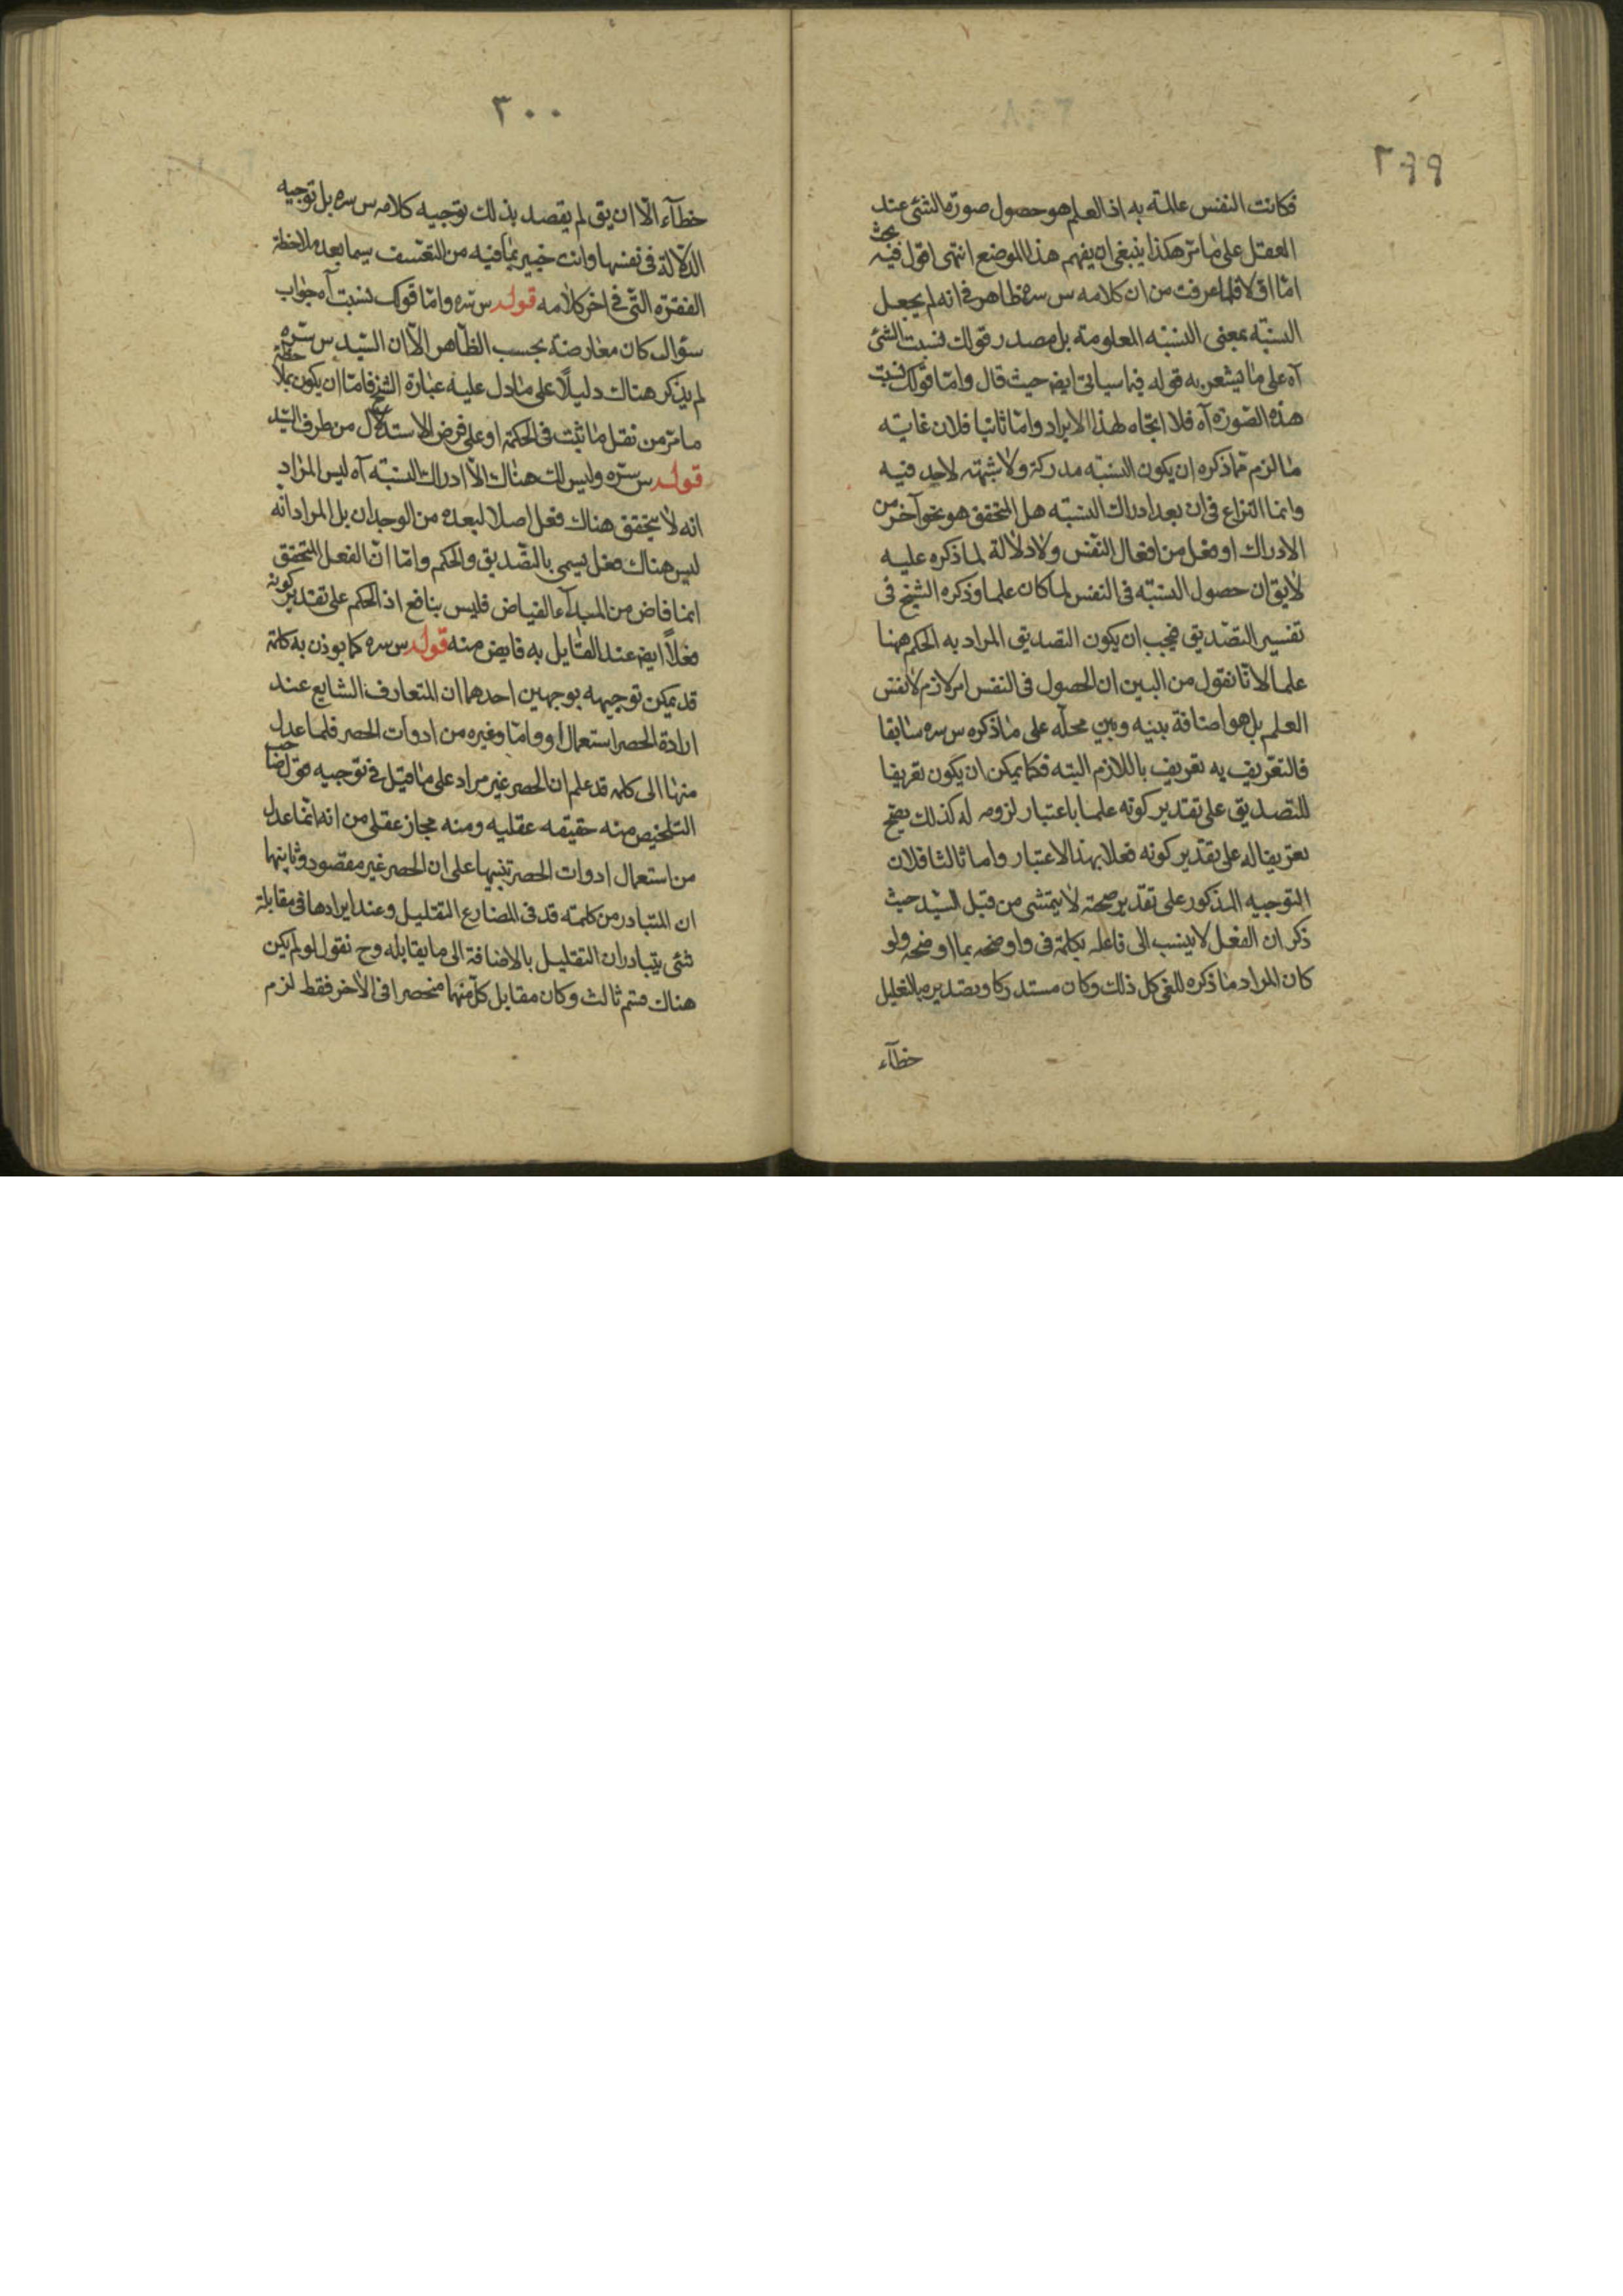 ٢٩٩
فكانت النفس عالمة به اذ العلم هو حصول صورة الشئ عند
العقل على ما مرّ هكذا ينبغى ان يفهم هذا الموضع انتهى اقول فيه بحث
امّا اوّلا فلما عرفت من ان كلامه س سره ظاهر فى انه لم يجعل
النسبة بمعنى النسبة المعلومة بل مصدر قولك نسبت الشئ
آه على ما يشعر به قوله فيما سياتى ايضا حيث قال وامّا قولك نسبت
هذه الصورة آه فلا اتجاه لهذا الايراد وامّا ثانيا فلان غايته
ما لزم ممّا ذكره ان يكون النسبة مدركة ولا شبهة لاحد فيه
وانما النزاع فى ان بعد ادراك النسبة هل المتحقق هو نحو آخر من
الادراك او فعل من افعال النفس ولا دلالة لما ذكره عليه
لا يق ان حصول النسبة فى النفس لما كان علما وذكره الشيخ فى
تفسير التصديق فيجب ان يكون التصديق المراد به الحكم ههنا
علما لانّا نقول من البين ان الحصول فى النفس امر لازم لا نفس
العلم بل هو اضافة بينه وبين محلّه على ما ذكره س سره سابقا
فالتعريف به تعريف باللازم البتة فكما يمكن ان يكون تعريفا
للتصديق على تقدير كونه علما باعتبار لزومه له كذلك يصحّ
تعريفا له على تقدير كونه فعلا بهذا الاعتبار واما ثالثا فلان
التوجيه المذكور على تقدير صحته لا يتمشى من قبل السيد حيث
ذكر ان الفعل لا ينسب الى فاعله بكلمة فى واوضحه بما اوضحه ولو
كان المراد ما ذكره للغى كل ذلك وكان مستدركا وتصديره بالتعليل
خطآء
٣٠٠
خطآء الّا ان يق لم يقصد بذلك توجيه كلامه س سره بل توجيه
الدلالة فى نفسها وانت خبير بما فيه من التعسف سيما بعد ملاحظة
الفقرة التى فى اخر كلامه قوله س سره وامّا قولك نسبت آه جواب
سؤال كان معارضة بحسب الظاهر الّا ان السّيد س سّره
لم يذكر هناك دليلًا على ما دل عليه عبارة الشيخ فامّا ان يكون بملاحظة
ما مرّ من نقل ما ثبت فى الحكمة او على فرض الاستدلال من طرف السّيد
قوله س سّره وليس لك هناك الّا ادراك النسبة آه ليس المراد
انه لا يتحقق هناك فعل اصلا لبعده من الوجدان بل المراد انّه
ليس هناك فعل يسمى بالتصّديق والحكم وامّا انّ الفعل المتحقق
انما فاض من المبدآء الفياض فليس بنافع اذ الحكم على تقدير كونه
فعلًا ايضا عند القايل به فايض منه قوله س سره كما يوذن به كلمة
قد يمكن توجيهه بوجهين احدهما ان المتعارف الشايع عند
ارادة الحصر استعمال او وامّا وغيره من ادوات الحصر فلما عدل
منها الى كلمه قد علم ان الحصر غير مراد على ما قيل فى توجيه قول صاحب
التلخيص منه حقيقه عقليه ومنه مجاز عقلى من انه انّما عدل
من استعمال ادوات الحصر تنبيها على ان الحصر غير مقصود وثانيهما
ان المتبادر من كلمة قد فى المضارع التقليل وعند ايرادها فى مقابلة
شئى يتبادر ان التقليل بالاضافة الى ما يقابله وح نقول لو لم يكن
هناك قسم ثالث وكان مقابل كلّ منهما منحصرا فى الآخر فقط لزم